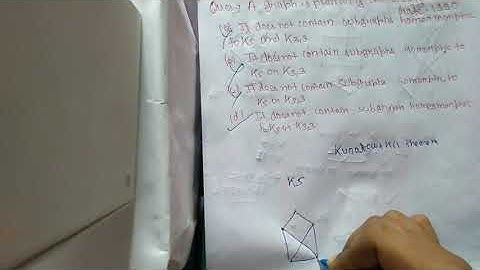 A graph is planar
(a) It does not contain subgraphs homeomorphic
to K5 and K3,3
(b) It does not contain subgraphs isomorphic to
K5 or K3,3
(c) It does not contain subgraphs isomorphic to
K5 or K3,3
(d) It does not contain subgraph homeomorphic
to K5 or K3,3
Theorem
K5